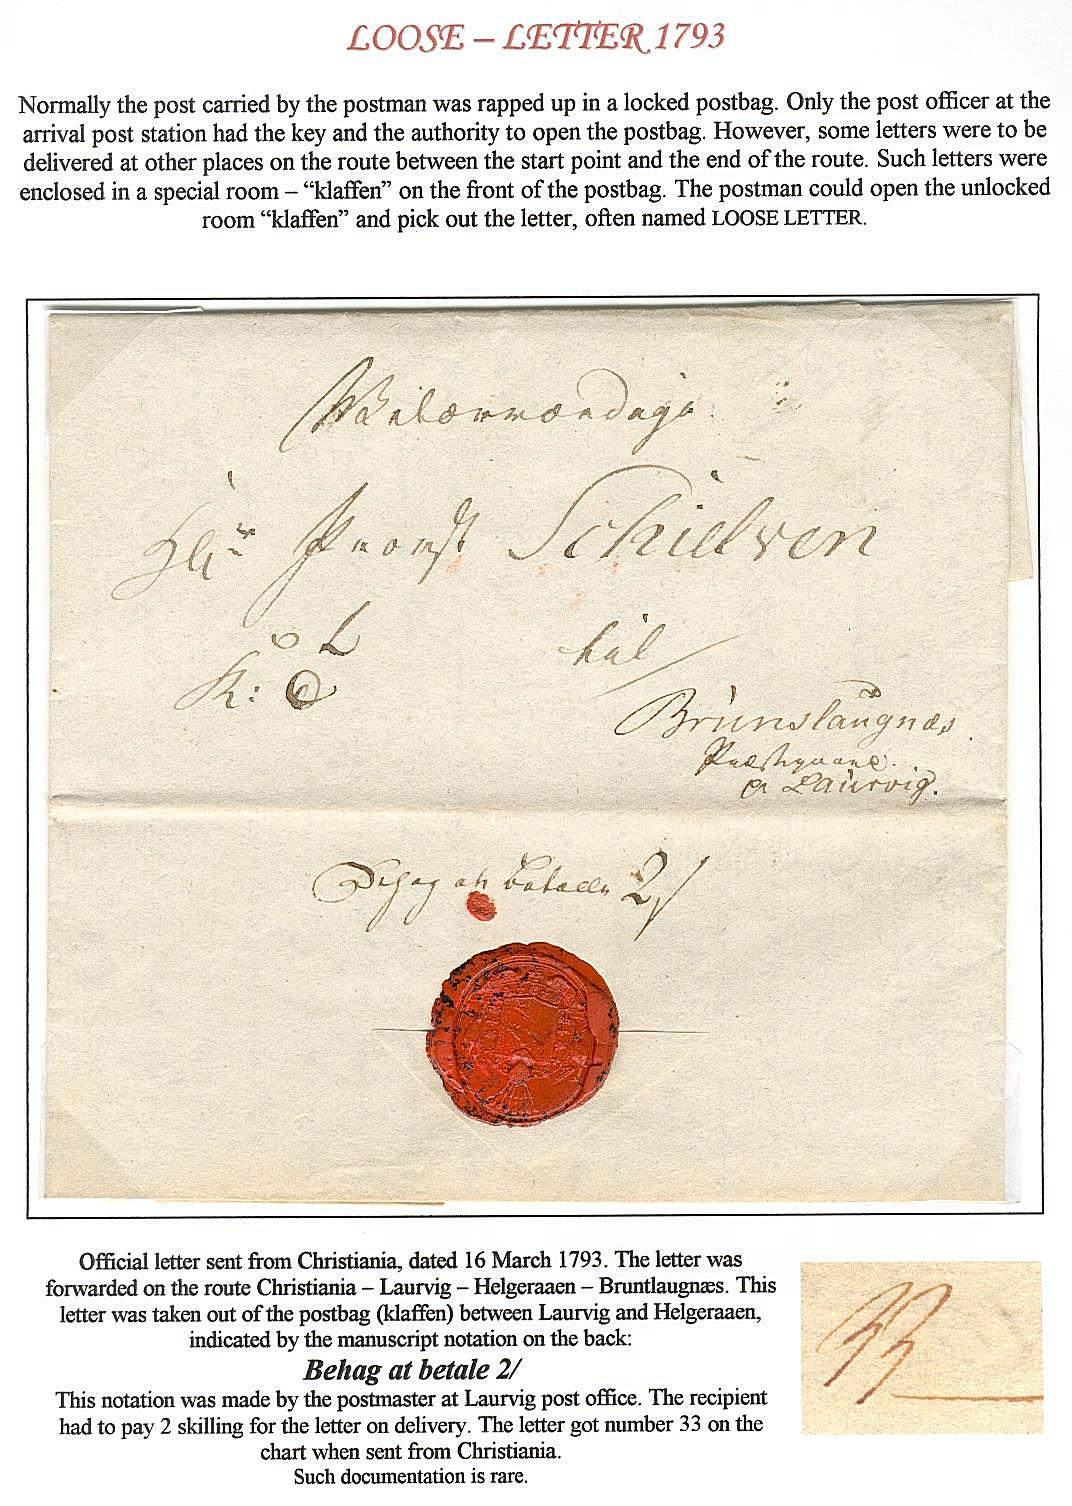 LOOSE – LETTER 1793
Normally the post carried by the postman was rapped up in a locked postbag. Only the post officer at the
arrival post station had the key and the authority to open the postbag. However, some letters were to be
delivered at other places on the route between the start point and the end of the route. Such letters were
enclosed in a special room – “klaffen” on the front of the postbag. The postman could open the unlocked
room “klaffen” and pick out the letter, often named LOOSE LETTER.
Hr Provst Schielven
K:
til
Brunslaugnæs.
a Laurvig.
Behag at betale 2/
Official letter sent from Christiania, dated 16 March 1793. The letter was
forwarded on the route Christiania – Laurvig – Helgeraaen – Bruntlaugnæs. This
letter was taken out of the postbag (klaffen) between Laurvig and Helgeraaen,
indicated by the manuscript notation on the back:
Behag at betale 2/
This notation was made by the postmaster at Laurvig post office. The recipient
had to pay 2 skilling for the letter on delivery. The letter got number 33 on the
chart when sent from Christiania.
Such documentation is rare.
33